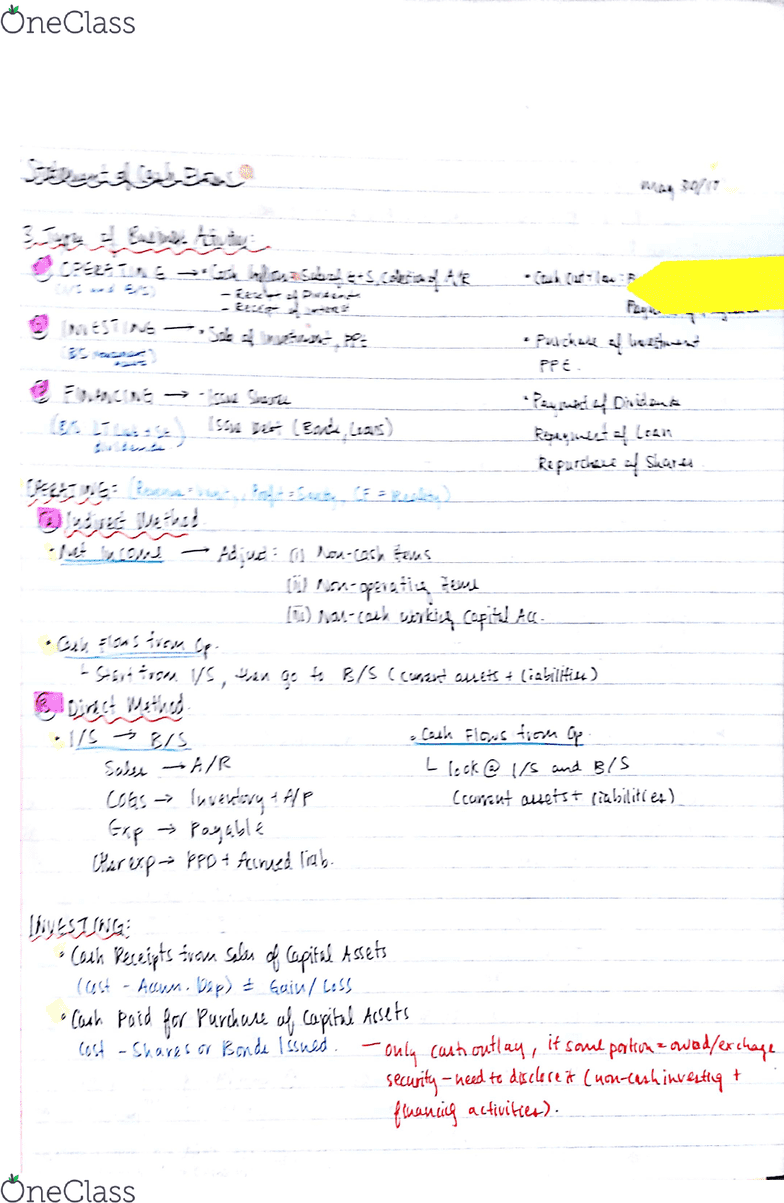 OneClass
Statement of Cash Flows
May 30/17
3 Types of Business Activities:
① OPERATING → • Cash Inflow: Sales of G+S, Collection of A/R • Cash Outflow:
(I/S and B/S) - Receipt of Dividends
- Receipt of Interest
② INVESTING → • Sale of Investment, PPE • Purchase of Investment
PPE.
③ FINANCING → - Issue Shares • Payment of Dividends
Issue Debt (Bonds, Loans) Repayment of Loan
dividends
Repurchase of Shares.
OPERATING: (Revenue = Vanity, Profit = Sanity, CF = Reality)
Ⓐ Indirect Method
• Net Income → Adjust: (i) Non-cash items
(ii) Non-operating items
(iii) Non-cash working Capital Acc.
• Cash Flows from Op.
└ Start from I/S, then go to B/S (current assets + liabilities)
Ⓑ Direct Method
• I/S → B/S • Cash Flows from Op
Sales → A/R └ look @ I/S and B/S
COGS → Inventory + A/P (current assets + liabilities)
Exp → Payable
Other exp → PPD + Accrued liab.
INVESTING:
• Cash Receipts from Sales of Capital Assets
(Cost - Accum. Dep) ± Gain/Loss
• Cash Paid for Purchase of Capital Assets
Cost - Shares or Bonds Issued. - only cash outlay, if some portion = owed/exchange
security - need to disclose it (non-cash investing +
financing activities).
OneClass